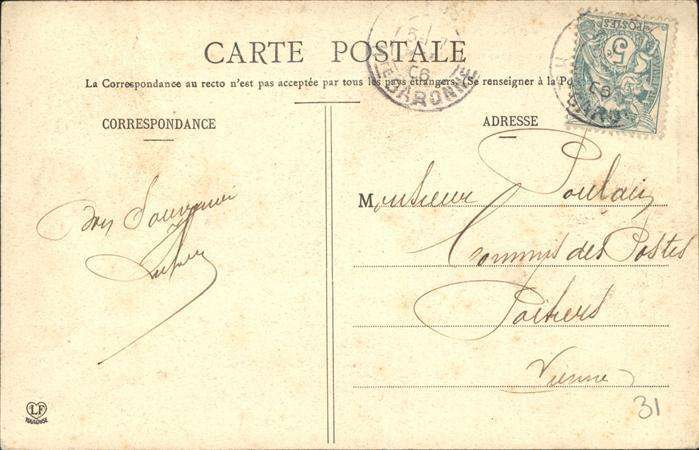 CARTE POSTALE
La Correspondance au recto n'est pas acceptée par tous les pays étrangers. (Se renseigner à la Po
CORRESPONDANCE
ADRESSE
Bon Souvenir
Monsieur Poulain
Commis des Postes
Poitiers
Vienne
31
5
POSTES
GARONNE
LF
TOULOUSE